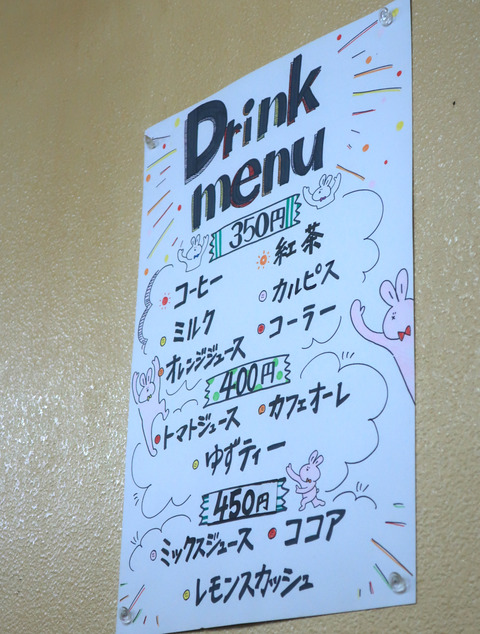 Drink
menu
350円
コーヒー 紅茶
ミルク カルピス
オレンジジュース コーラー
400円
トマトジュース カフェオーレ
ゆずティー
450円
ミックスジュース ココア
レモンスカッシュ